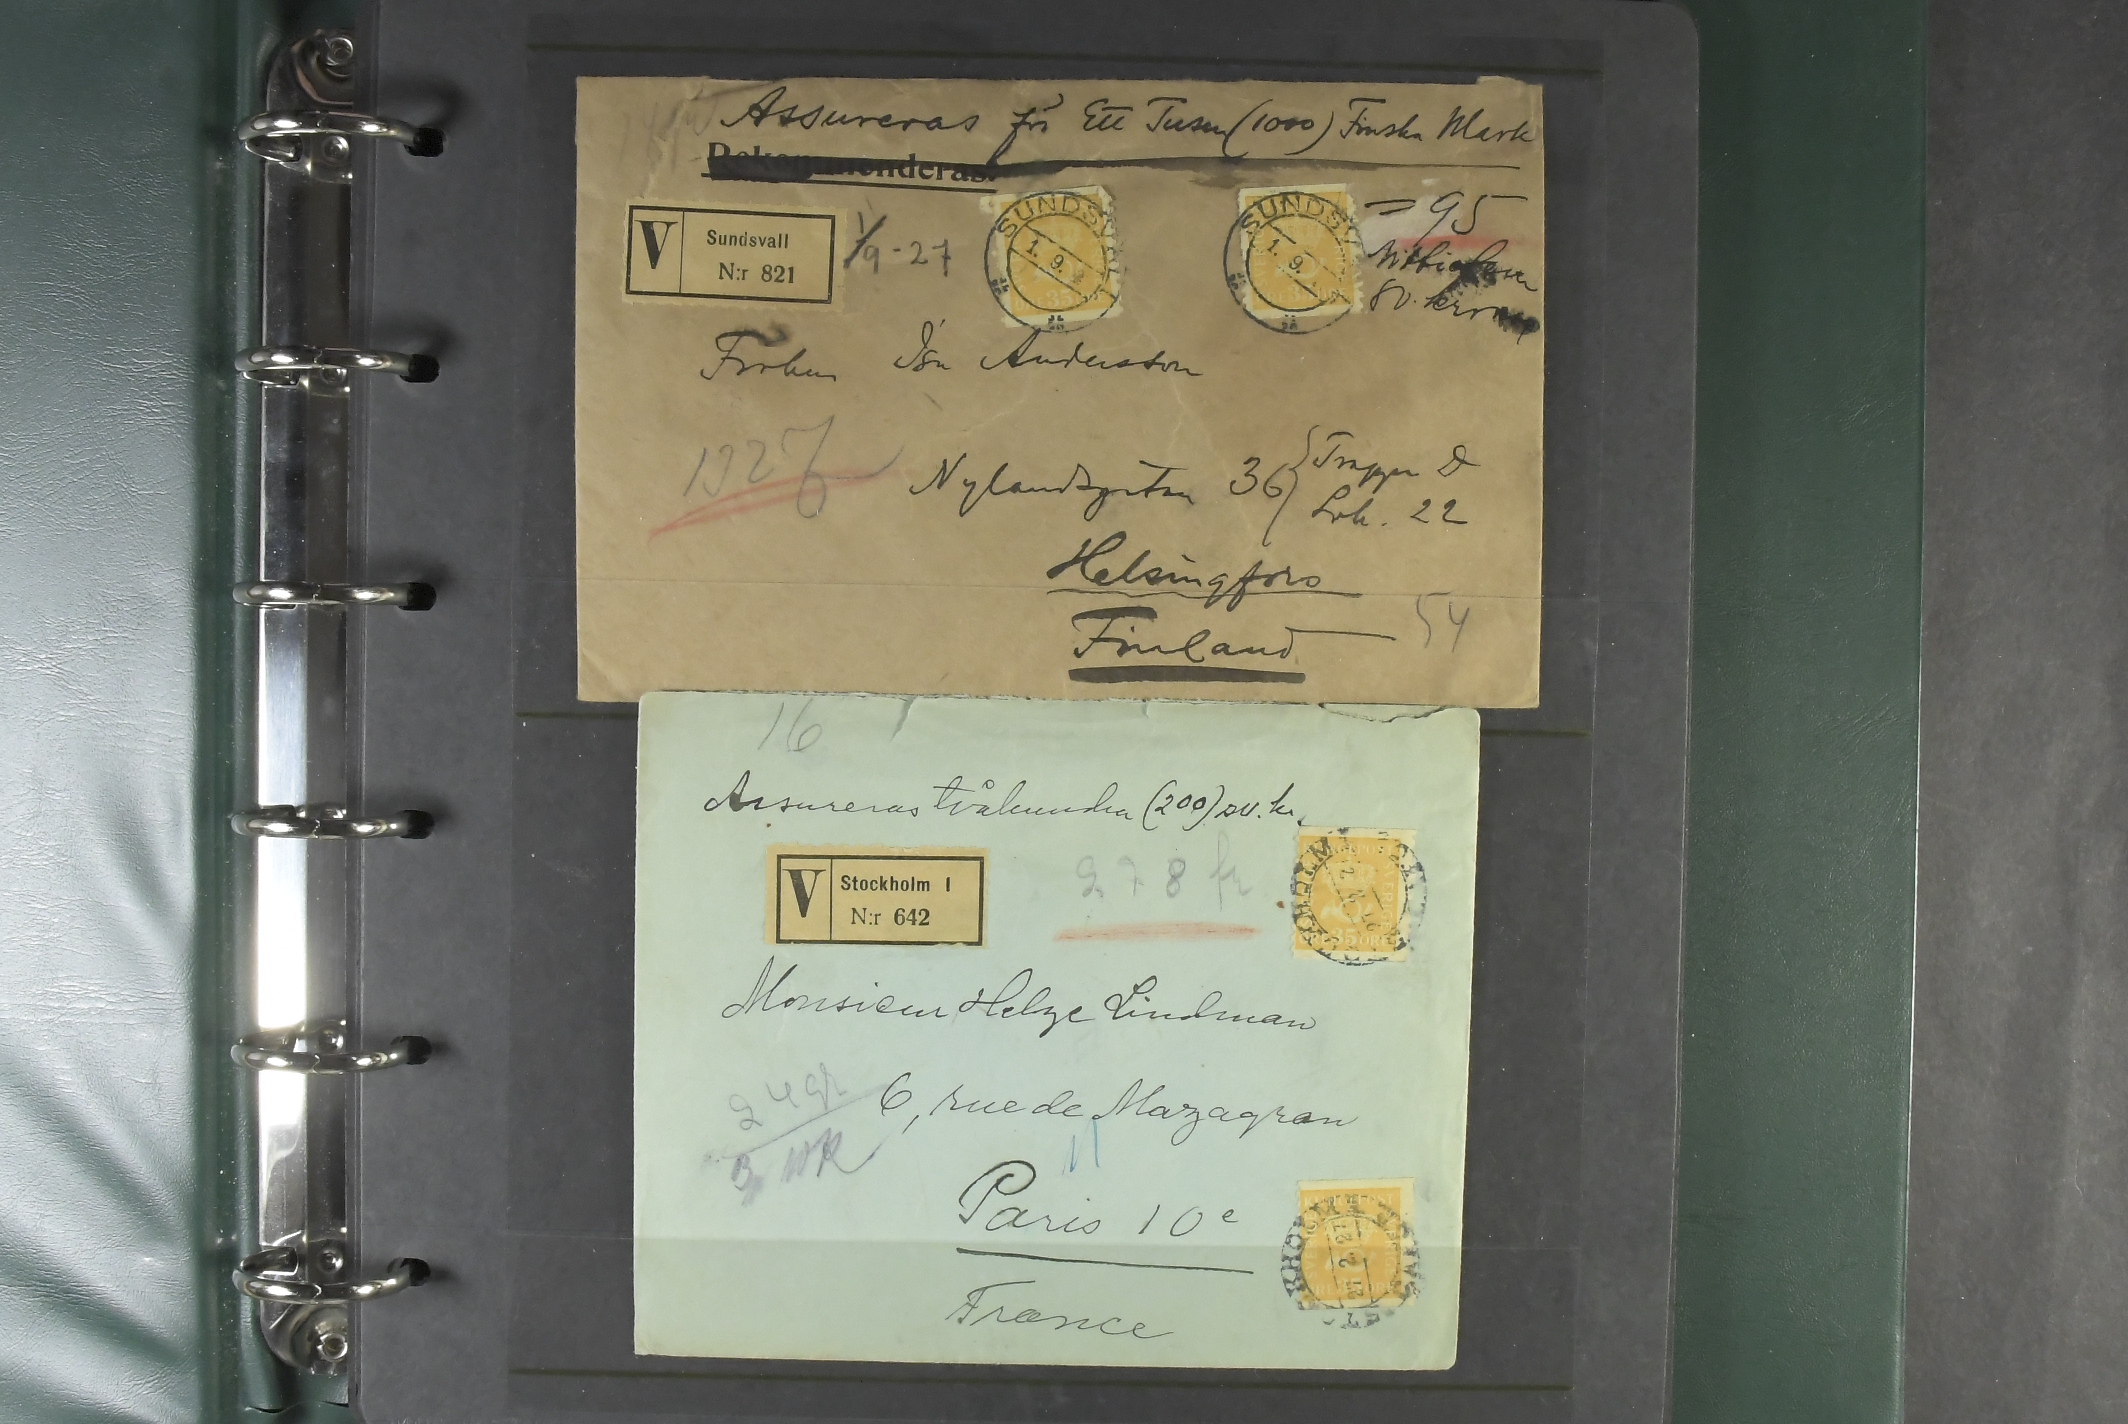 Assureras för Ett Tusen (1000) Finska Mark
Rekommenderas.
V
Sundsvall
N:r 821
1/9-27
SUNDSVALL
1.9.
35
SUNDSV
1.9.
= 95
kronor
Fröken Isa Andersson
1327
Nylandsgatan 36
Trappa D
Lok. 22
Helsingfors
Finland
54
16
Assureras tvåhundra (200) sv. kr.
V
Stockholm 1
N:r 642
278 fr
35 ÖRE
Monsieur Helge Lindman
24 gr
6, rue de Mazagran
Paris 10e
France